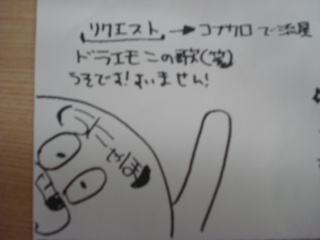 リクエスト→コブクロで流星
ドラエモンの歌(笑)
うそです!すいません!